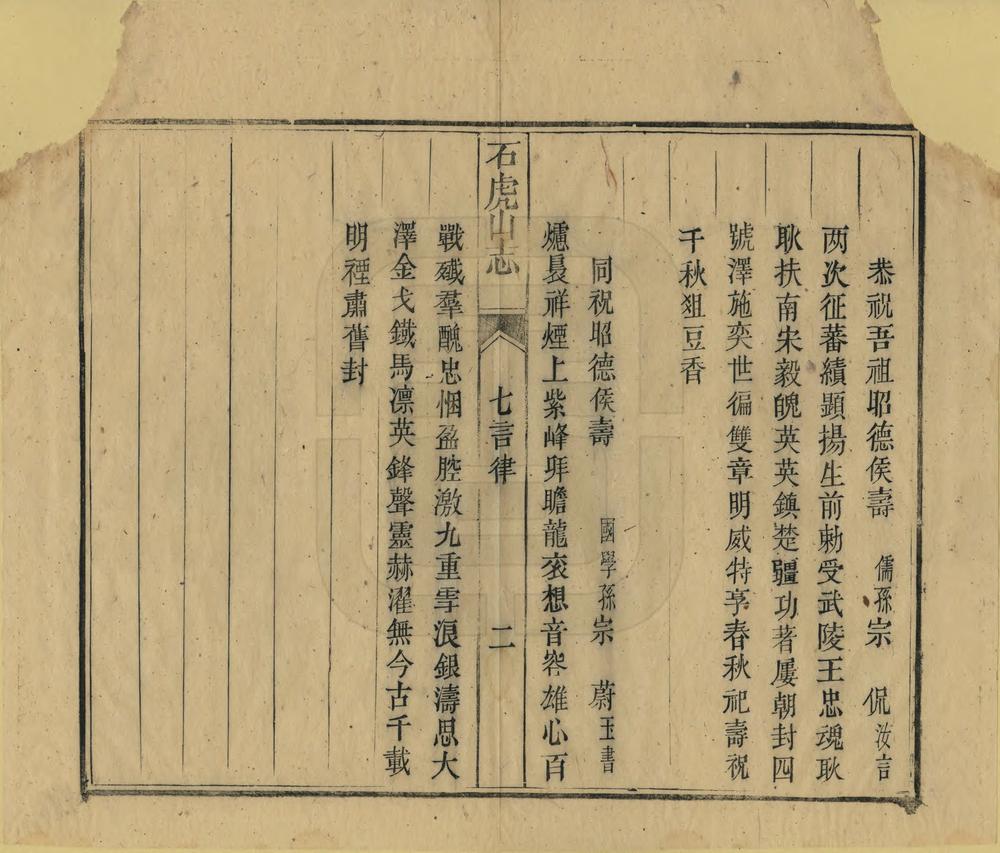 恭祝吾祖昭德侯壽 儒孫宗 侃汝言
两次征蕃績顯揚生前勅受武陵王忠魂耿
耿扶南宋毅魄英英鎮楚疆功著屢朝封四
號澤施奕世徧雙章明威特享春秋祀壽祝
千秋俎豆香
同祝昭德侯壽 國學孫宗 蔚玉書
爐㬓祥煙上紫峰拜瞻龍衮想音容雄心百
石虎山志 七言律 二
戰殲羣醜忠悃盈腔激九重雪浪銀濤思大
澤金戈鐵馬凛英鋒聲靈赫濯無今古千載
明禋肅舊封